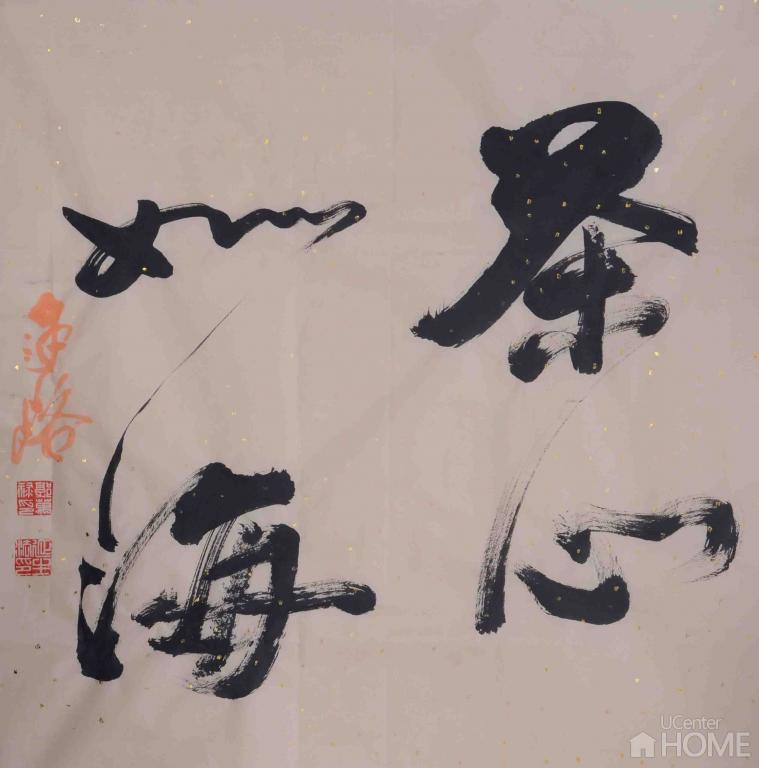 茶心
如海
UCenter
HOME